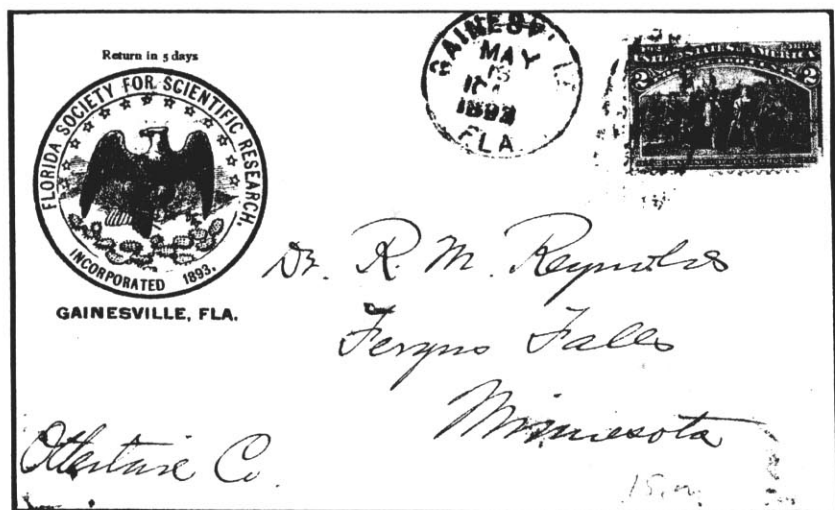 Return in 5 days
FLORIDA SOCIETY FOR SCIENTIFIC RESEARCH.
INCORPORATED 1893.
GAINESVILLE, FLA.
MAY
FLA
UNITED STATES OF AMERICA
2 2
Dr. R. M. Reynolds
Fergus Falls
Minnesota
Ottertail Co.